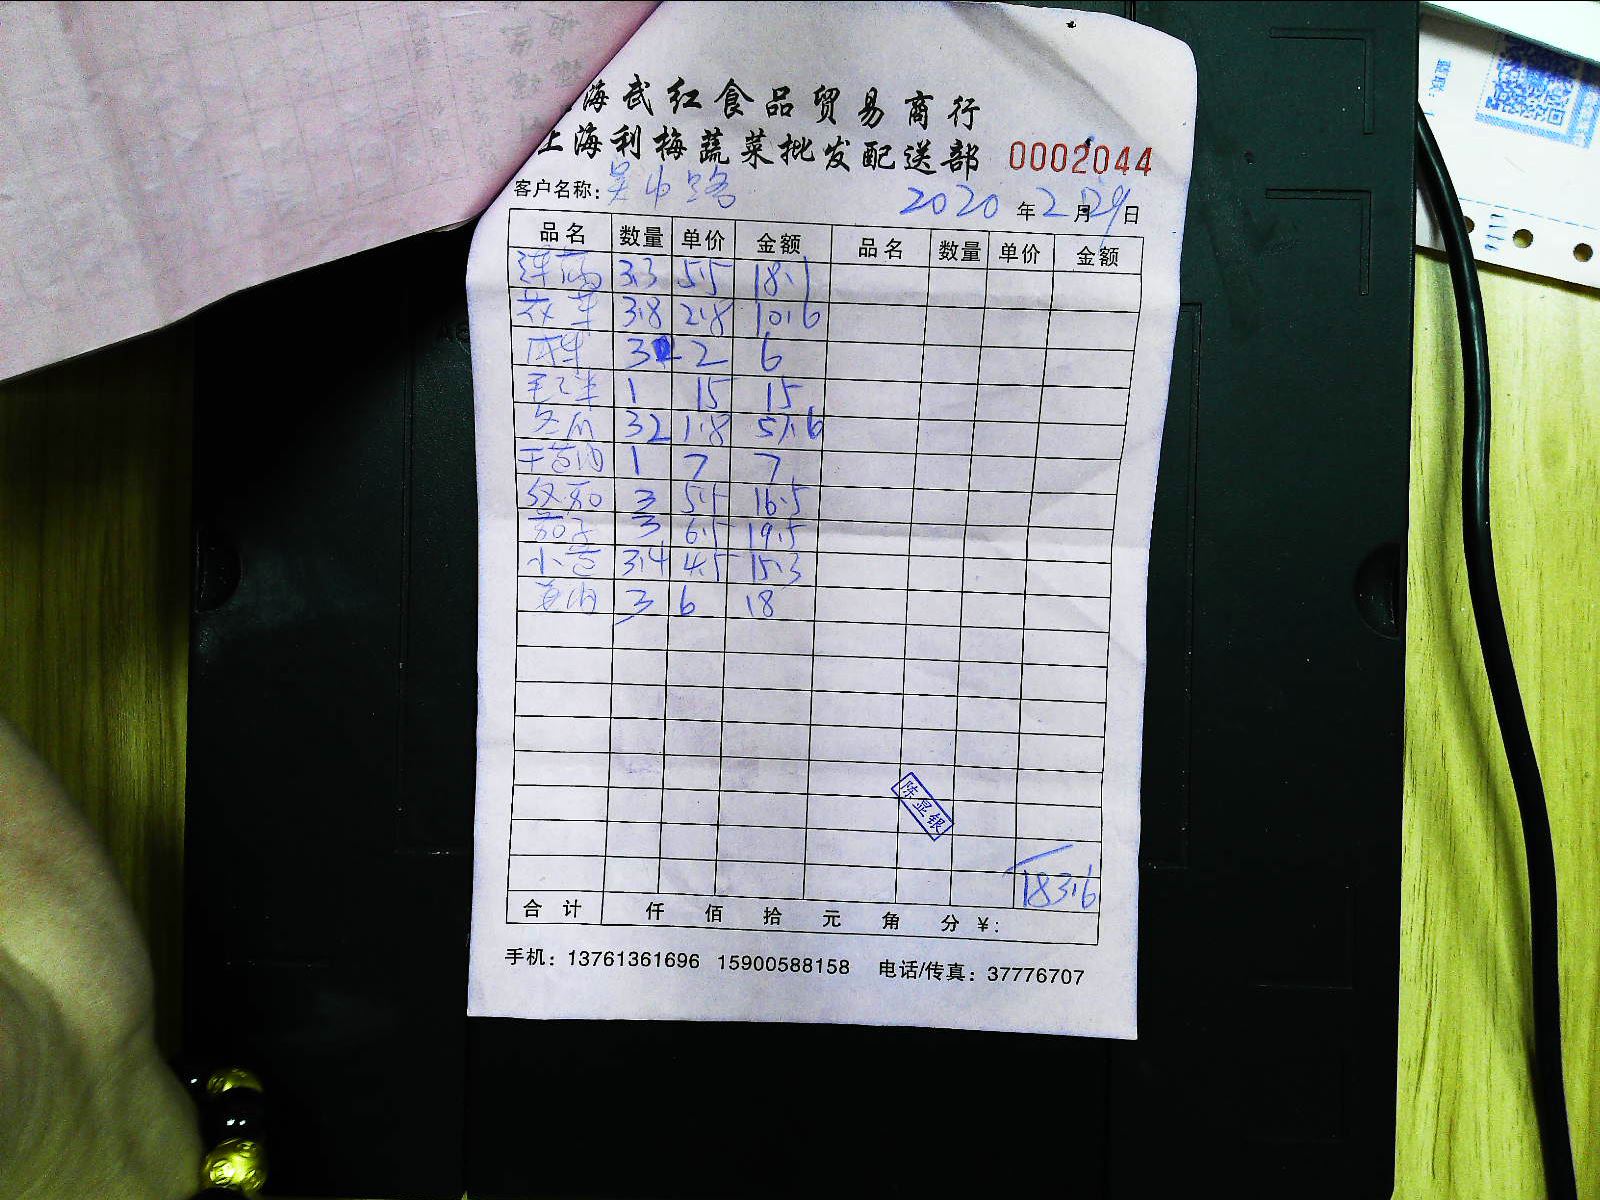 海武红食品贸易商行
上海利梅蔬菜批发配送部 0002044
客户名称: 吴中路 2020 年 2 月 29 日
品名 数量 单价 金额 品名 数量 单价 金额
莲藕 3.3 5.5 18.1
花菜 3.8 2.8 10.6
3 2 6
1 15 15
冬瓜 32 1.8 57.6
1 7 7
3 5.5 16.5
茄子 3 6.5 19.5
小 3.4 4.5 15.3
黄 3 6 18
陈显银
183.6
合计 仟 佰 拾 元 角 分 ¥:
手机: 13761361696 15900588158 电话/传真: 37776707